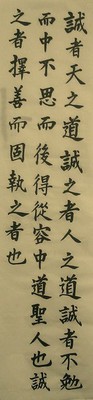 誠者天之道誠之者人之道誠者不勉
而中不思而後得從容中道聖人也誠
之者擇善而固執之者也